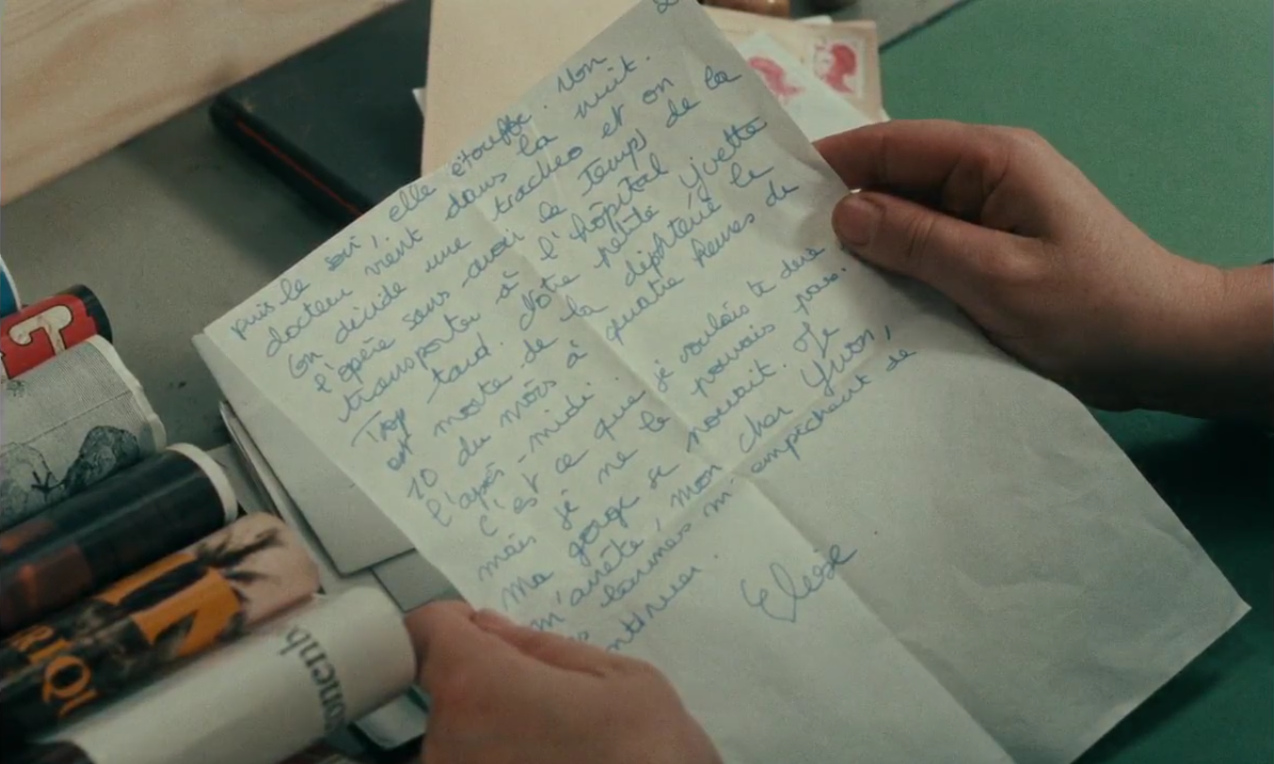 puis le soir, elle étouffe. Un
docteur vient dans la nuit.
On décide une trachéo et on
l'opère sans avoir le temps de la
transporter à l'hôpital
Trop tard. Notre petite Yvette
est morte de la diphtérie le
10 du mois à quatre heures de
l'après-midi.
C'est ce que je voulais te dire
mais je ne le pouvais pas.
Ma gorge se nouait. Je
m'arrête, mon cher Yvon,
larmes m'empêchent de
ntinuer.
Elise
onenb
RIQU